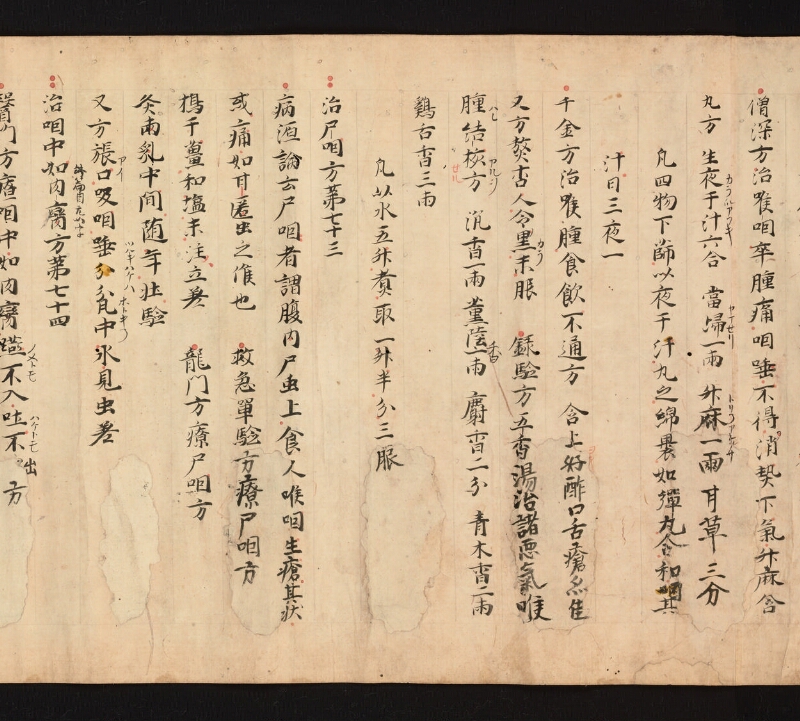 僧深方治喉咽卒腫痛咽唾不得消熱下氣升麻含
丸方 生夜干汁六合 當歸一兩 升麻一兩 甘草三分
凡四物下篩以夜干汁丸之綿裹如彈丸含和咽其
汁日三夜一
千金方治喉腫食飲不通方 含上好酢口舌瘡亦佳
又方熬杏人令黒末服 録驗方五香湯治諸惡氣喉
腫結核方 沉香一兩 薫陸香一兩 麝香二分 青木香二兩
鷄舌香三兩
凡以水五升煮取一升半分三服
治尸咽方第七十三
病源論云尸咽者謂腹内尸虫上食人喉咽生瘡其状
或痛如甘䘌虫之候也 救急單驗方療尸咽方
擣干薑和塩末注立差 龍門方療尸咽方
灸兩乳中間随年壮驗
又方張口吸咽唾分瓫中水見虫差
治咽中如肉臠方第七十四
龍門方療咽中如肉臠噎不入吐不出方